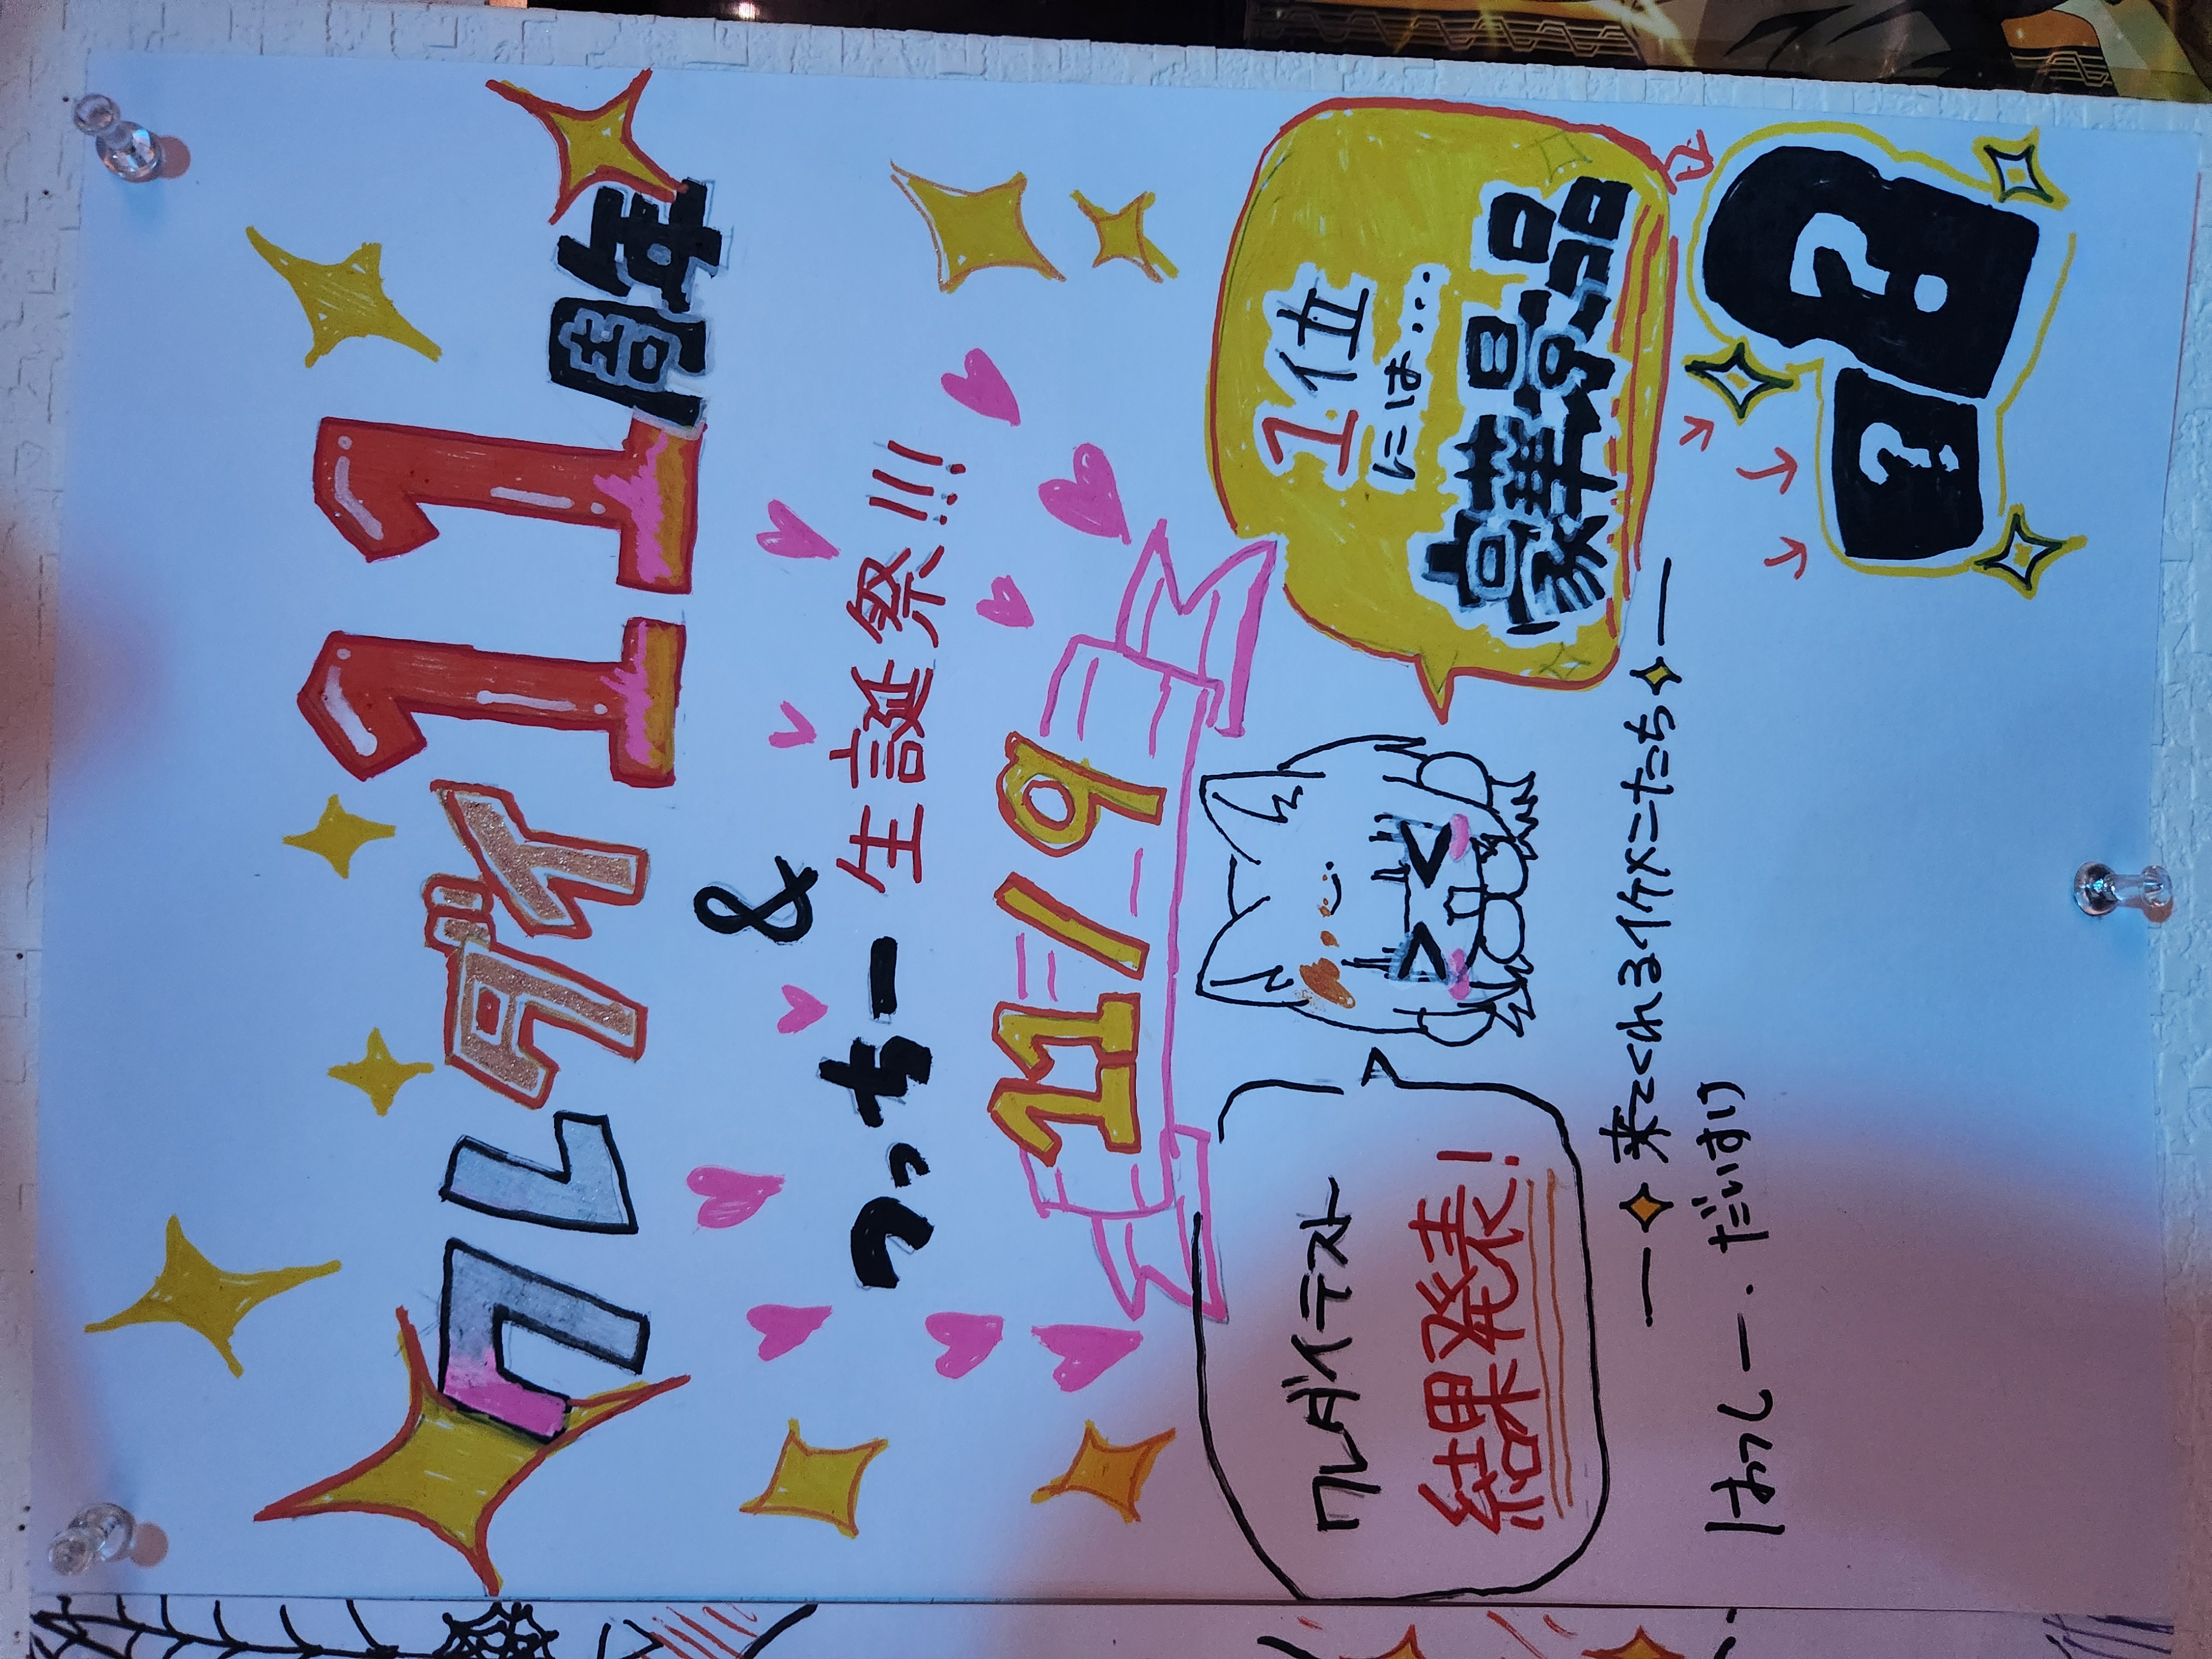 クレダイ11周年
&
つっちー生誕祭!!!
11/9
クレダイテスト
結果発表!
1位
には...
豪華景品
? ?
来てくれるイケメンたち
はっしー・だいすけ